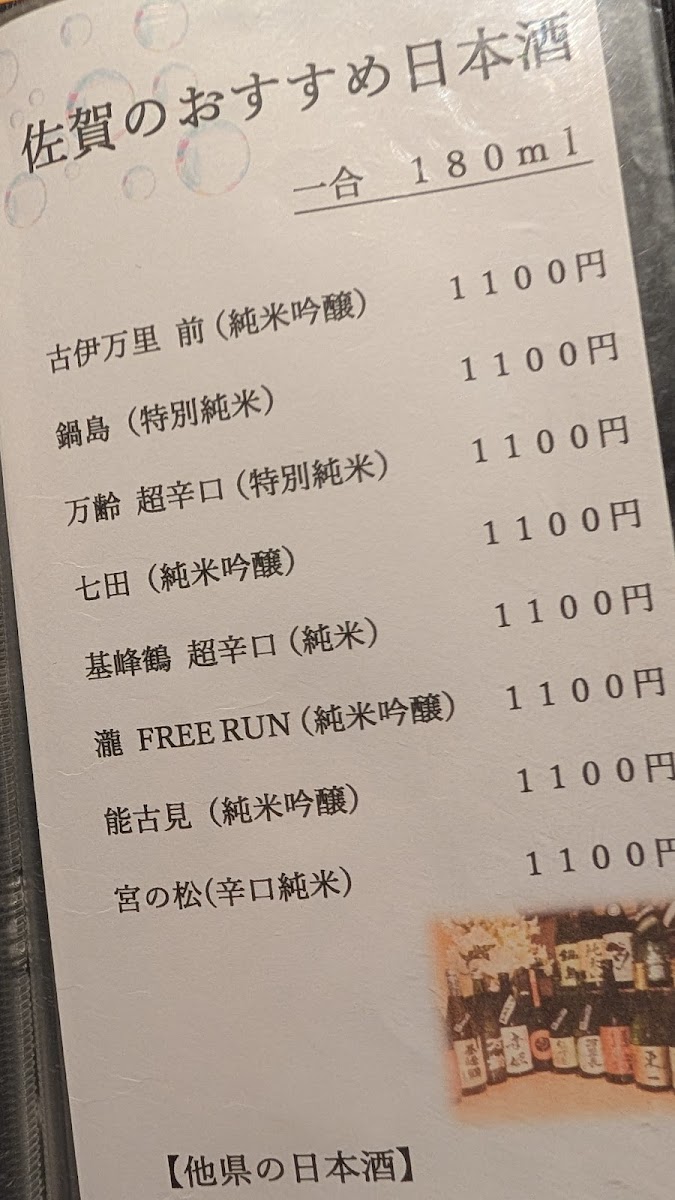 佐賀のおすすめ日本酒
一合　１８０ｍｌ
古伊万里 前（純米吟醸） １１００円
鍋島（特別純米） １１００円
万齢 超辛口（特別純米） １１００円
七田（純米吟醸） １１００円
基峰鶴 超辛口（純米） １１００円
瀧 FREE RUN（純米吟醸） １１００円
能古見（純米吟醸） １１００円
宮の松(辛口純米） １１００円
【他県の日本酒】